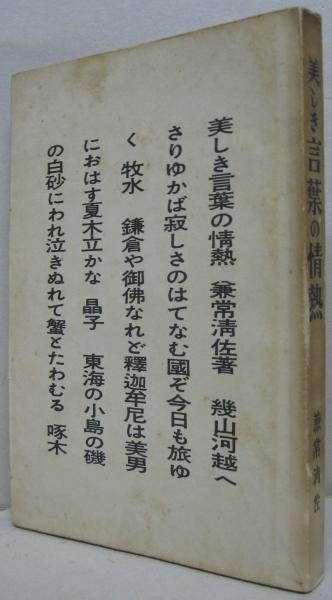 美しき言葉の情熱　兼常清佐著　幾山河越へ
さりゆかば寂しさのはてなむ國ぞ今日も旅ゆ
く　牧水　鎌倉や御佛なれど釋迦牟尼は美男
におはす夏木立かな　晶子　東海の小島の磯
の白砂にわれ泣きぬれて蟹とたわむる　啄木
美しき言葉の情熱　兼常清佐